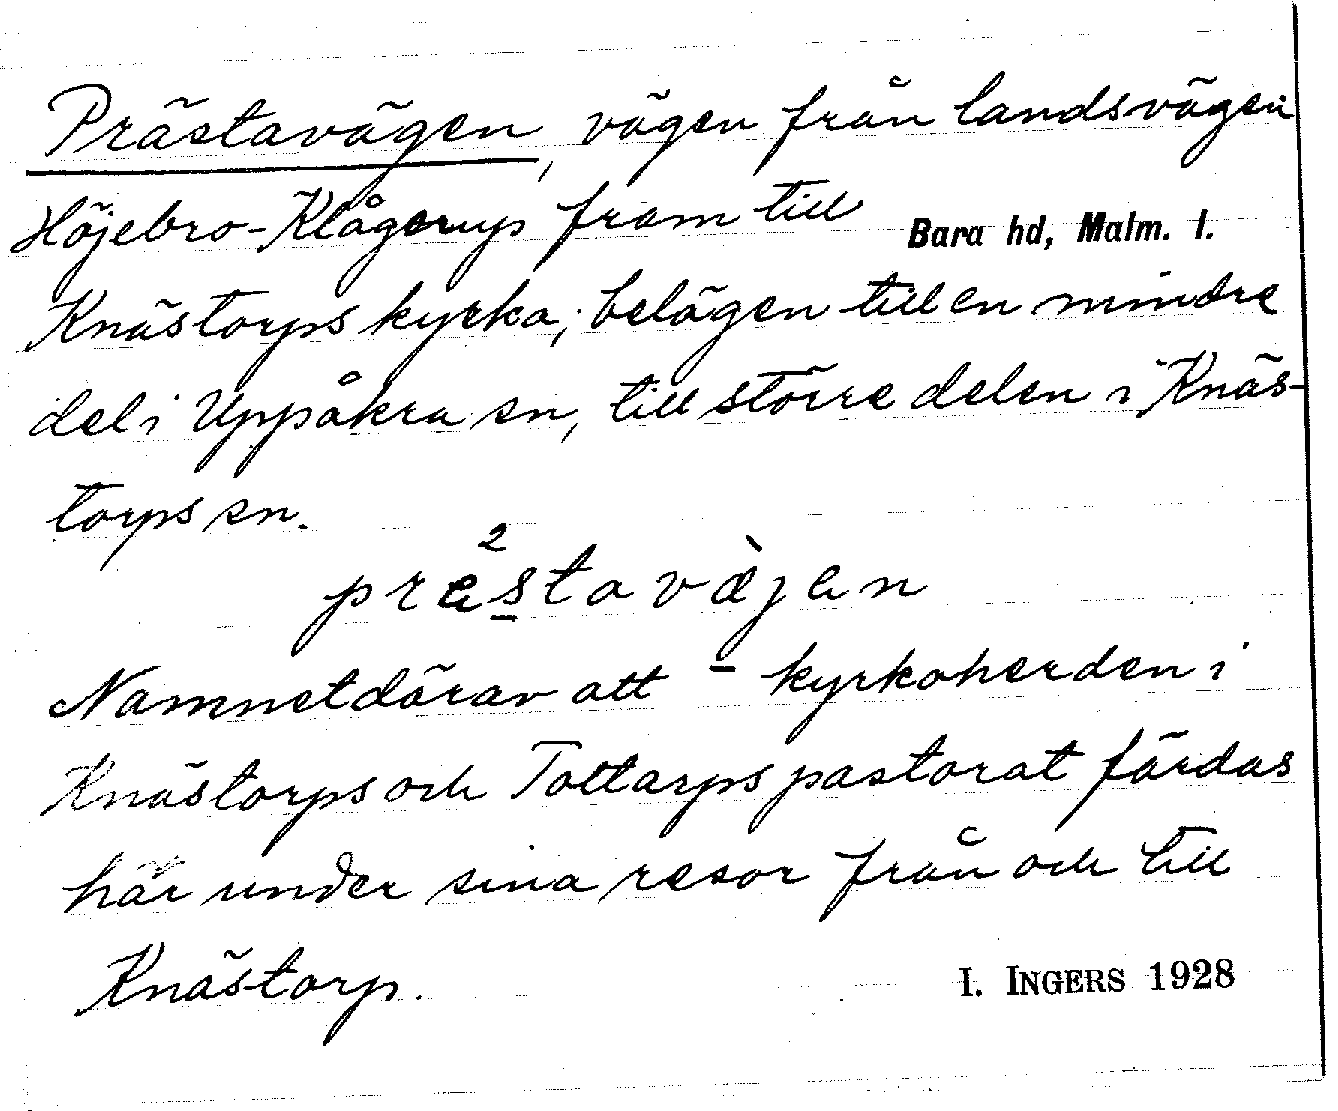 Prästavägen, vägen från landsvägen
Höjebro-Klågerup fram till
Bara hd, Malm. l.
Knästorps kyrka; belägen till en mindre
del i Uppåkra sn, till större delen i Knäs-
torps sn.
præ²stavæ̀jen
Namnet därav att - kyrkoherden i
Knästorps och Tottarps pastorat färdas
här under sina resor från och till
Knästorp.
I. INGERS 1928